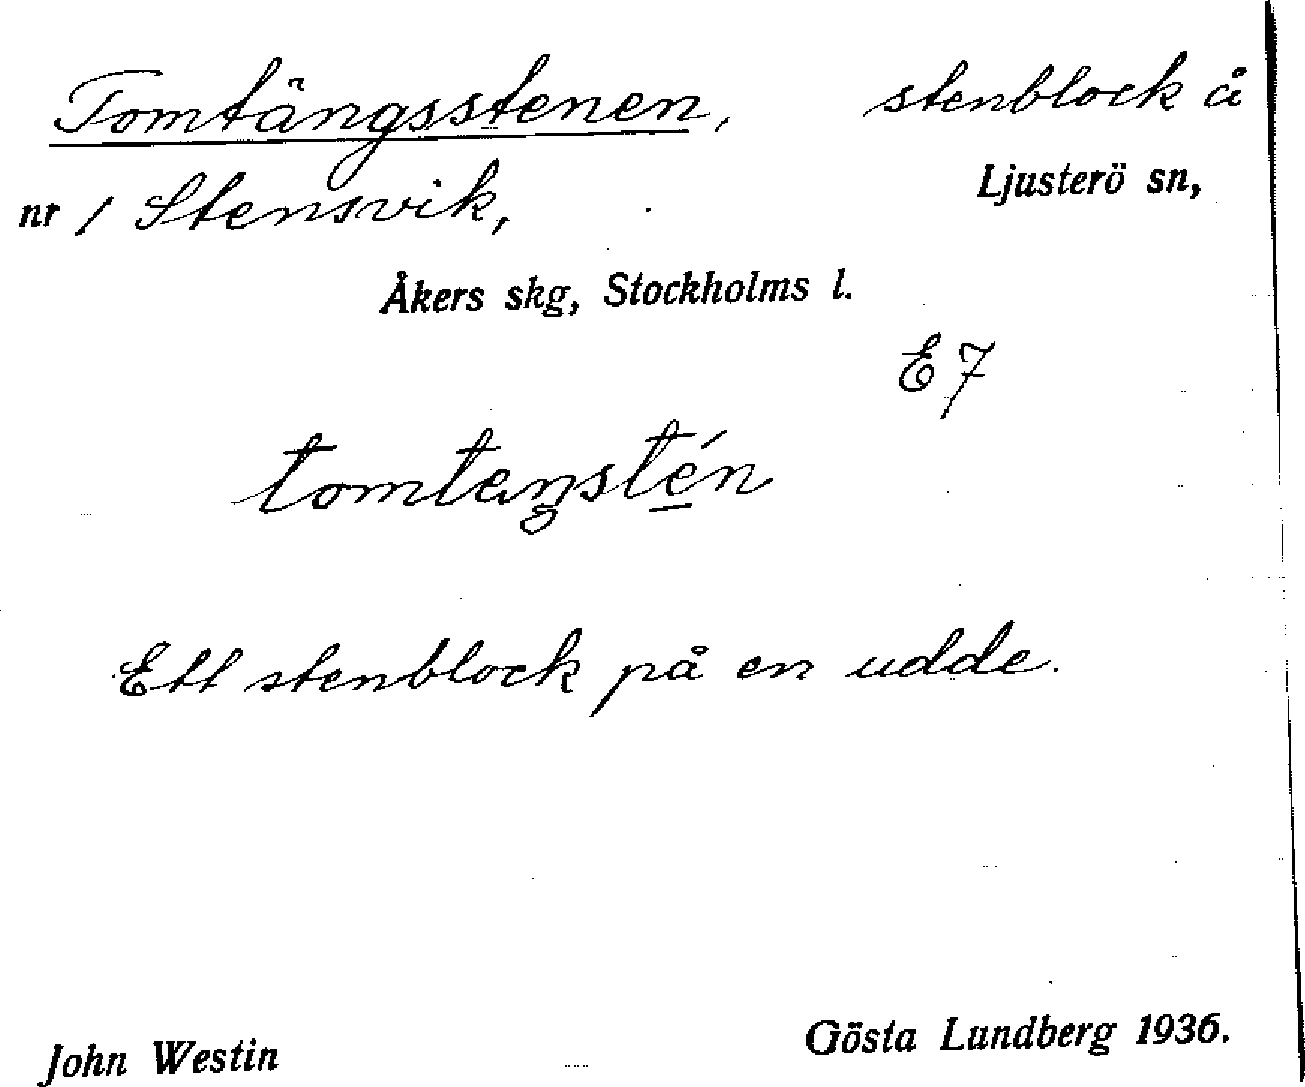 Tomtängsstenen, stenblock å
nr 1 Stensvik, Ljusterö sn,
Åkers skg, Stockholms l.
E 7
tomtaŋstén
Ett stenblock på en udde.
John Westin Gösta Lundberg 1936.